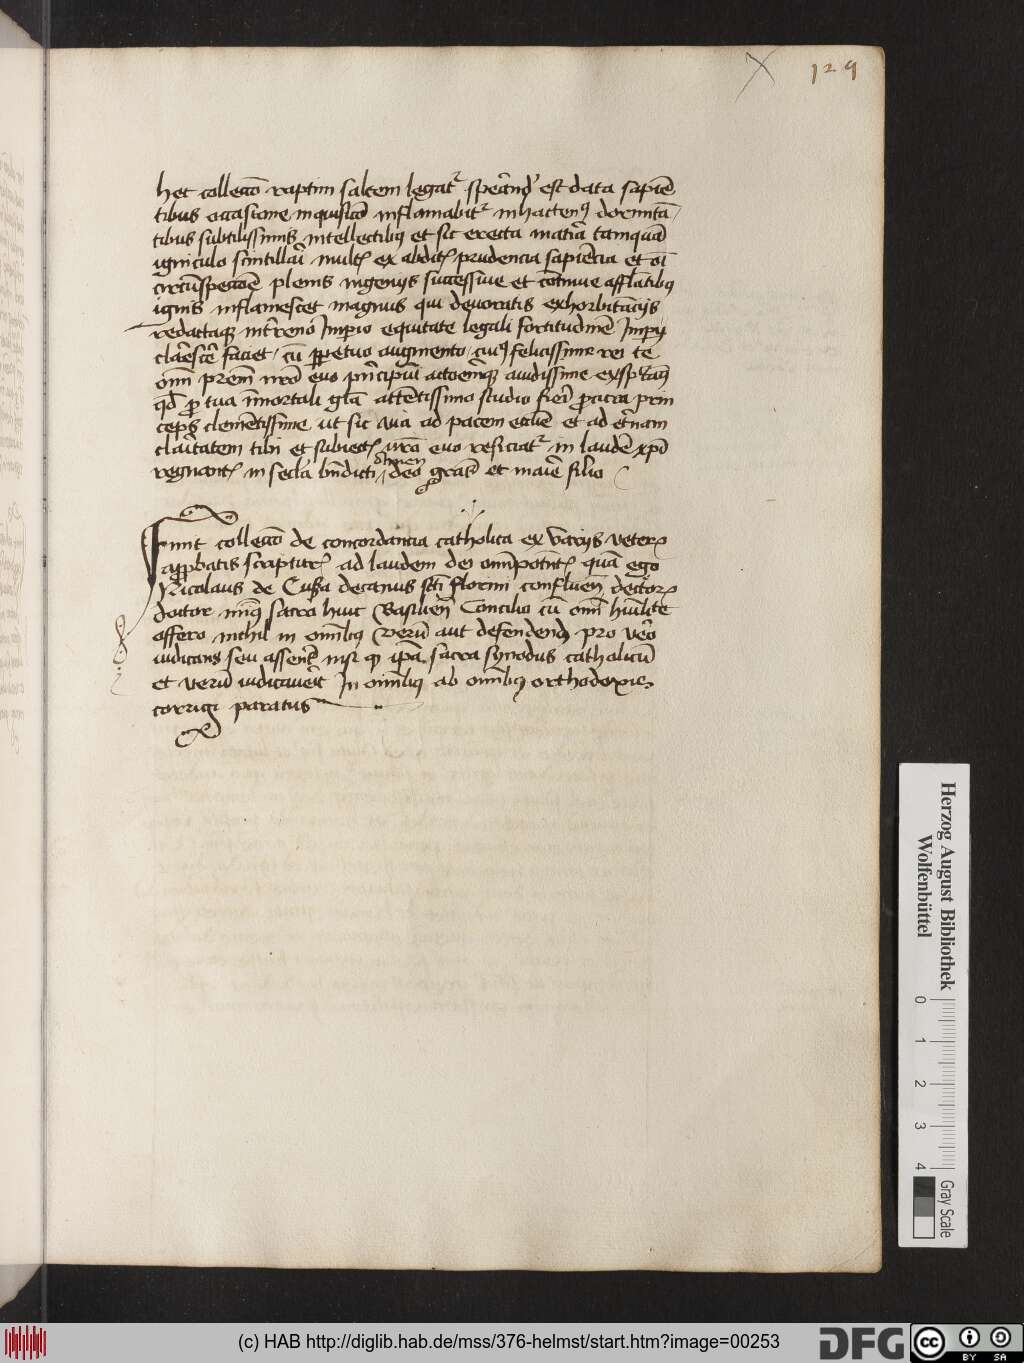 129
hec collectō raptim saltem legat᷑ sperand᷑ est data sapiē
tibus occasione inquisicō inflamabit᷑ in hacten⁹ dormitā
tibus subtilissimis intellectibus et sic erecta materia tamquā
igniculo scintillari mult᷑ ex abdit᷑ prudencia sapiēcia et
circūspectōe plenis ingenijs successiue et cōtinue afflatibus
ignis inflamescet magnus qui deuoratis exhorbitācijs
redactaque in terreno Imperio equitate legali fortitudinē Imperij
clarescere faciet cū perpetuo augmento cui⁹ felicissime rei te
omī nrō euo principum auidissime
qd pro tua īmortali gla attētissimo studio fieri procura prin
ceps clemētissime ut sic uia ad pacem ecclie et ad eternam
claritatem tibi et subiect᷑ nrō euo reficiat᷑ in laudē xpi
regnant᷑ in secla bndicti Amen deo gracias et marie filio
Sunt collectō de concordantia catholica ex varijs veter᷑
approbatis scriptur᷑ ad laudem dei omnipotent᷑ quā ego
Nicolaus de Cußa decanus scti florini confluen decretor᷑
doctor sacro huic Basilien Concilio cū omī humilitate
offero nichil in omībus verū aut defendend pro vero
iudicans seu asseren᷑ nisi q̄ ipa sacra synodus catholicū
et verū iudicauerit In omībus ab omībus orthodoxis
corrigi paratus
Herzog August Bibliothek
Wolfenbüttel
0
1
2
3
4
Gray Scale
(c) HAB http://diglib.hab.de/mss/376-helmst/start.htm?image=00253
DFG
cc
BY SA